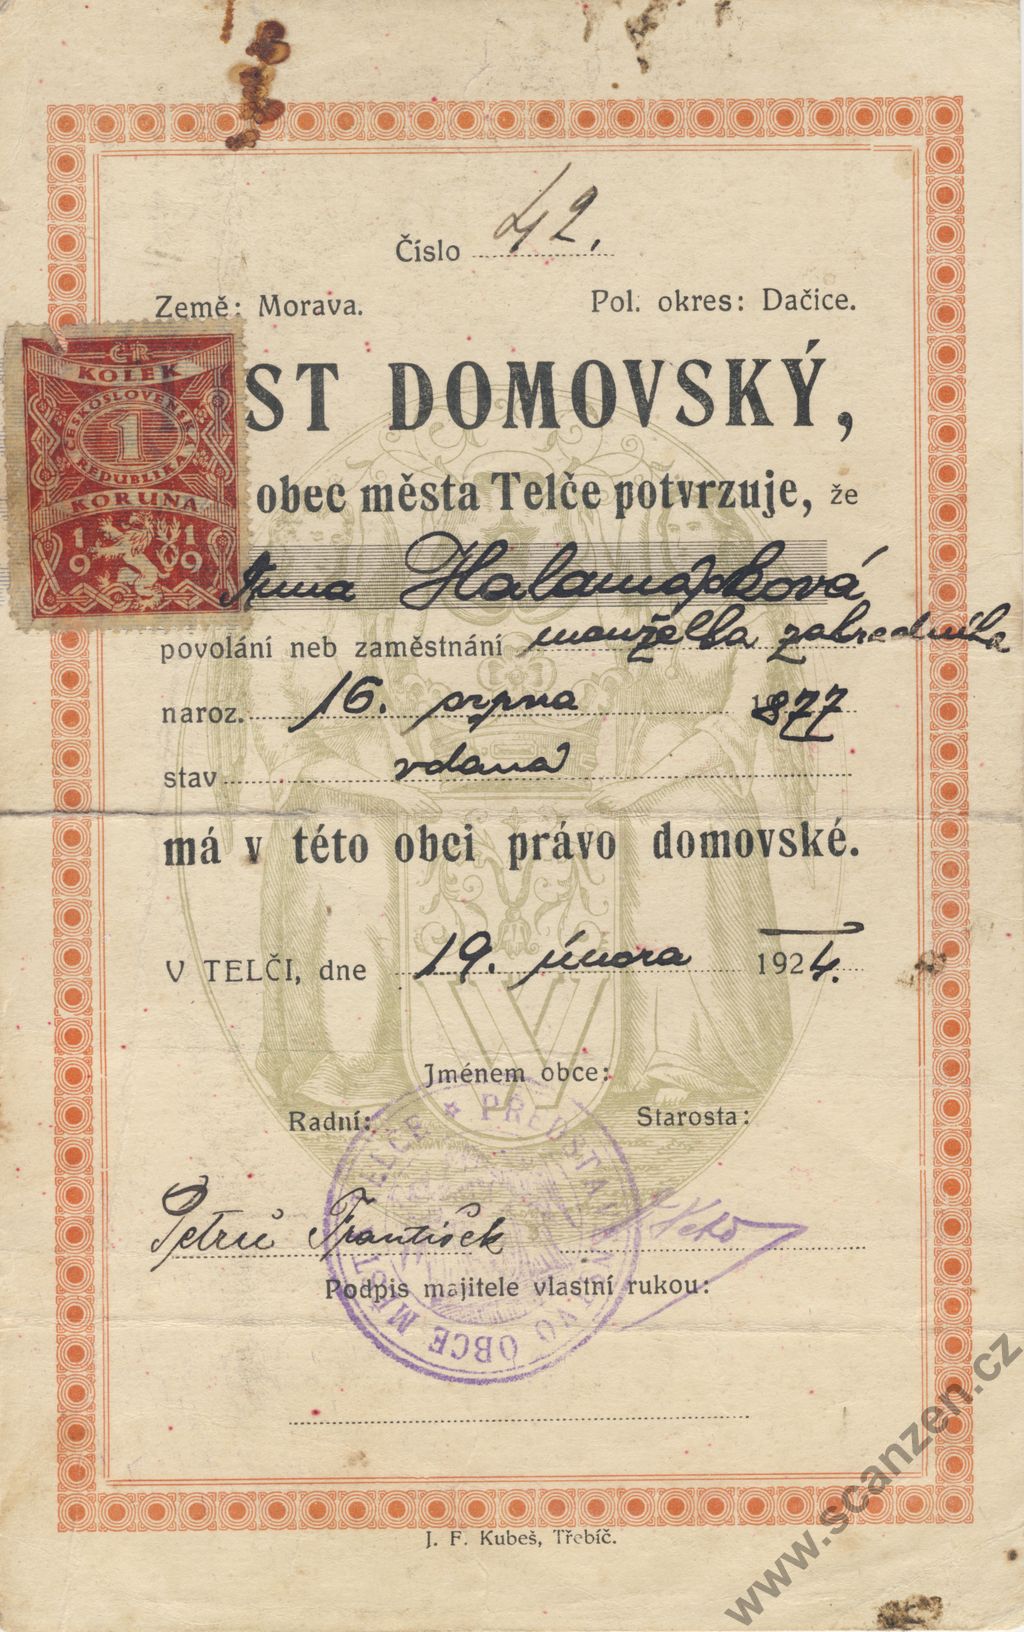 Číslo 42.
Země: Morava.
Pol. okres: Dačice.
ČR
KOLEK
ČESKOSLOVENSKÁ
1
REPUBLIKA
KORUNA
19 19
ST DOMOVSKÝ,
obec města Telče potvrzuje, že
Anna Halamásková
povolání neb zaměstnání manželka zahradníka
naroz. 16. srpna 1877
stav vdaná
má v této obci právo domovské.
V TELČI, dne 19. února 1924.
Jménem obce:
Radní:
Starosta:
PŘEDSTAVENSTVO OBCE MĚSTA TELČE
Petrů František
Podpis majitele vlastní rukou:
J. F. Kubeš, Třebíč.
www.scanzen.cz